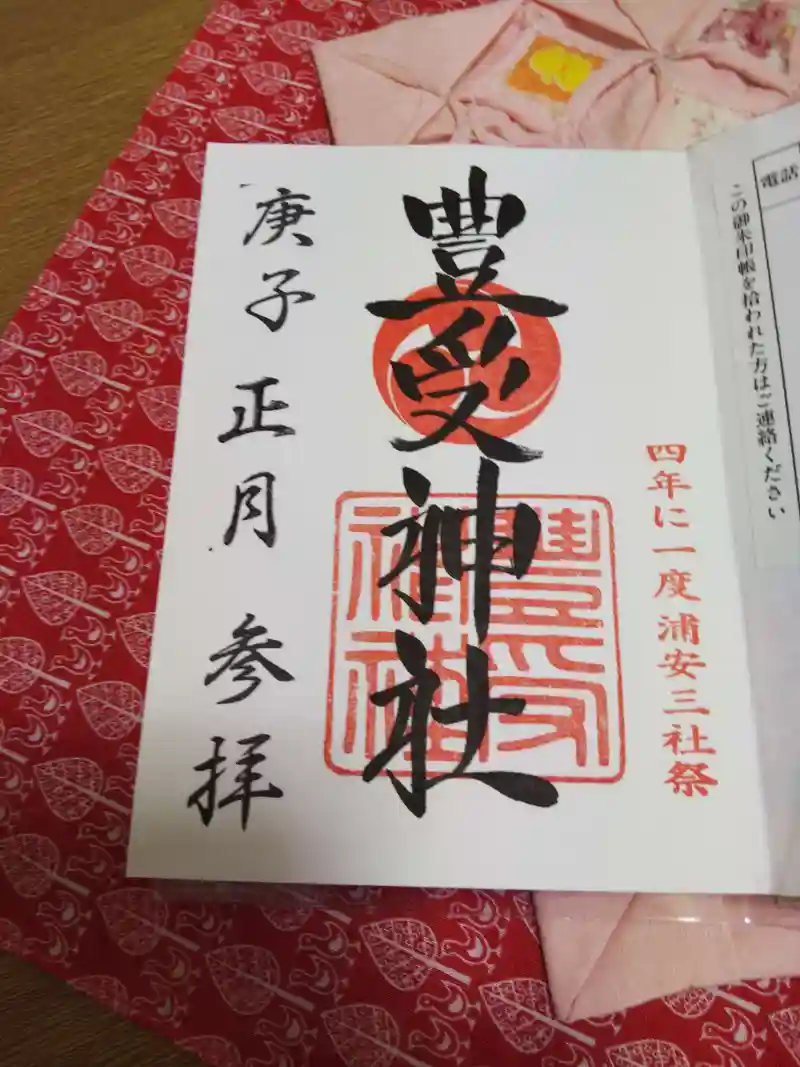 電話
この御朱印帳を拾われた方はご連絡ください
四年に一度浦安三社祭
豊受神社
庚子 正月 参拝